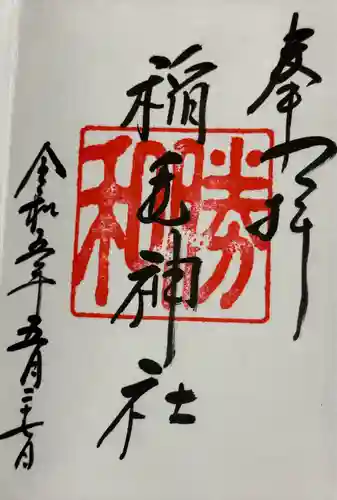 奉拝
勝和
稲毛神社
令和五年五月二十七日